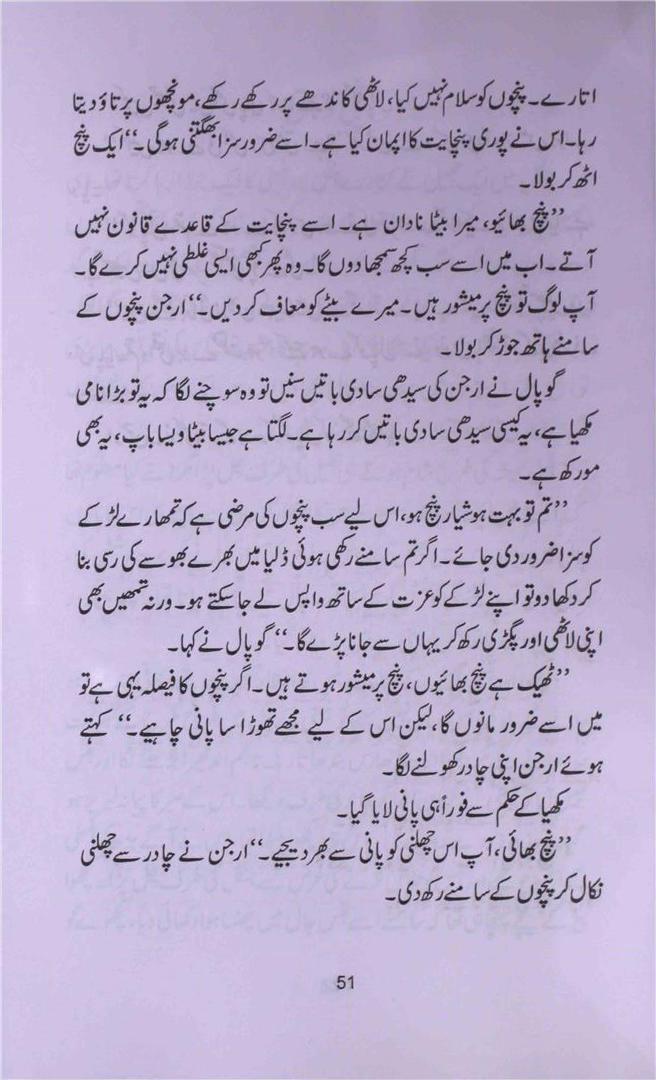 اتارے۔ پنچوں کو سلام نہیں کیا، لاٹھی کاندھے پر رکھے رکھے، مونچھوں پر تاؤ دیتا
رہا۔ اس نے پوری پنچایت کا اپمان کیا ہے۔ اسے ضرور سزا بھگتنی ہوگی۔‘‘ ایک پنچ
اٹھ کر بولا۔
’’پنچ بھائیو، میرا بیٹا نادان ہے۔ اسے پنچایت کے قاعدے قانون نہیں
آتے۔ اب میں اسے سب کچھ سمجھا دوں گا۔ وہ پھر کبھی ایسی غلطی نہیں کرے گا۔
آپ لوگ تو پنچ پرمیشور ہیں۔ میرے بیٹے کو معاف کر دیں۔‘‘ ارجن پنچوں کے
سامنے ہاتھ جوڑ کر بولا۔
گوپال نے ارجن کی سیدھی سادی باتیں سنیں تو وہ سوچنے لگا کہ یہ تو بڑا نامی
مکھیا ہے، یہ کیسی سیدھی سادی باتیں کر رہا ہے۔ لگتا ہے جیسا بیٹا ویسا باپ، یہ بھی
مورکھ ہے۔
’’تم تو بہت ہوشیار پنچ ہو، اس لیے سب پنچوں کی مرضی ہے کہ تمھارے لڑکے
کو سزا ضرور دی جائے۔ اگر تم سامنے رکھی ہوئی ڈلیا میں بھرے بھوسے کی رسی بنا
کر دکھا دو تو اپنے لڑکے کو عزت کے ساتھ واپس لے جا سکتے ہو۔ ورنہ تمھیں بھی
اپنی لاٹھی اور پگڑی رکھ کر یہاں سے جانا پڑے گا۔‘‘ گوپال نے کہا۔
’’ٹھیک ہے پنچ بھائیوں، پنچ پرمیشور ہوتے ہیں۔ اگر پنچوں کا فیصلہ یہی ہے تو
میں اسے ضرور مانوں گا، لیکن اس کے لیے مجھے تھوڑا سا پانی چاہیے۔‘‘ کہتے
ہوئے ارجن اپنی چادر کھولنے لگا۔
مکھیا کے حکم سے فوراً ہی پانی لایا گیا۔
’’پنچ بھائی، آپ اس چھلنی کو پانی سے بھر دیجیے۔‘‘ ارجن نے چادر سے چھلنی
نکال کر پنچوں کے سامنے رکھ دی۔
51